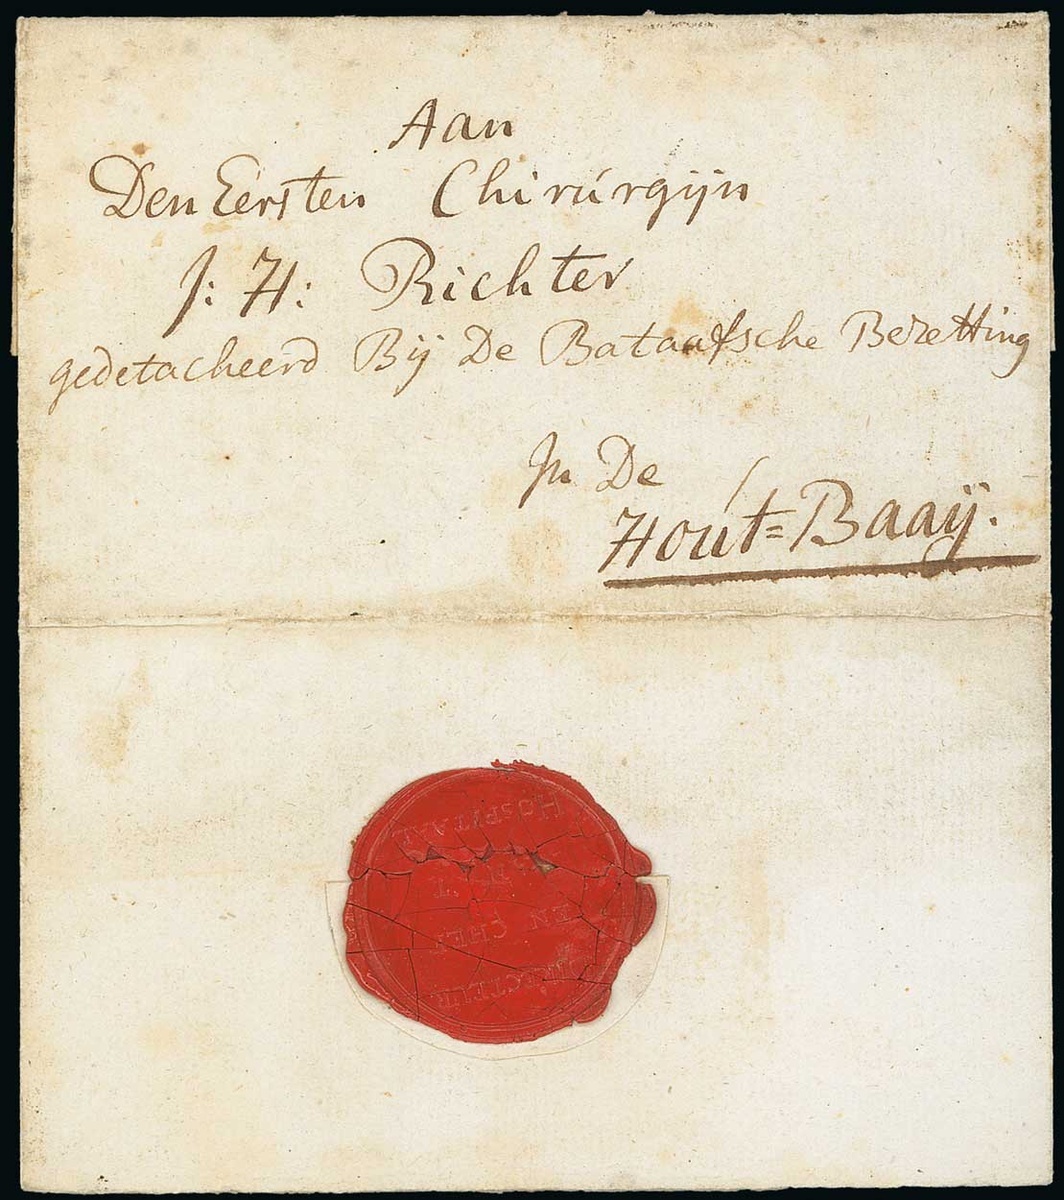 Aan
Den Eersten Chirúrgijn
J: H: Richter
gedetacheerd Bij De Bataafsche Bezetting
In De
Hoút=Baaij.
HOSPITAAL
EN CHEF
DIRECTEUR